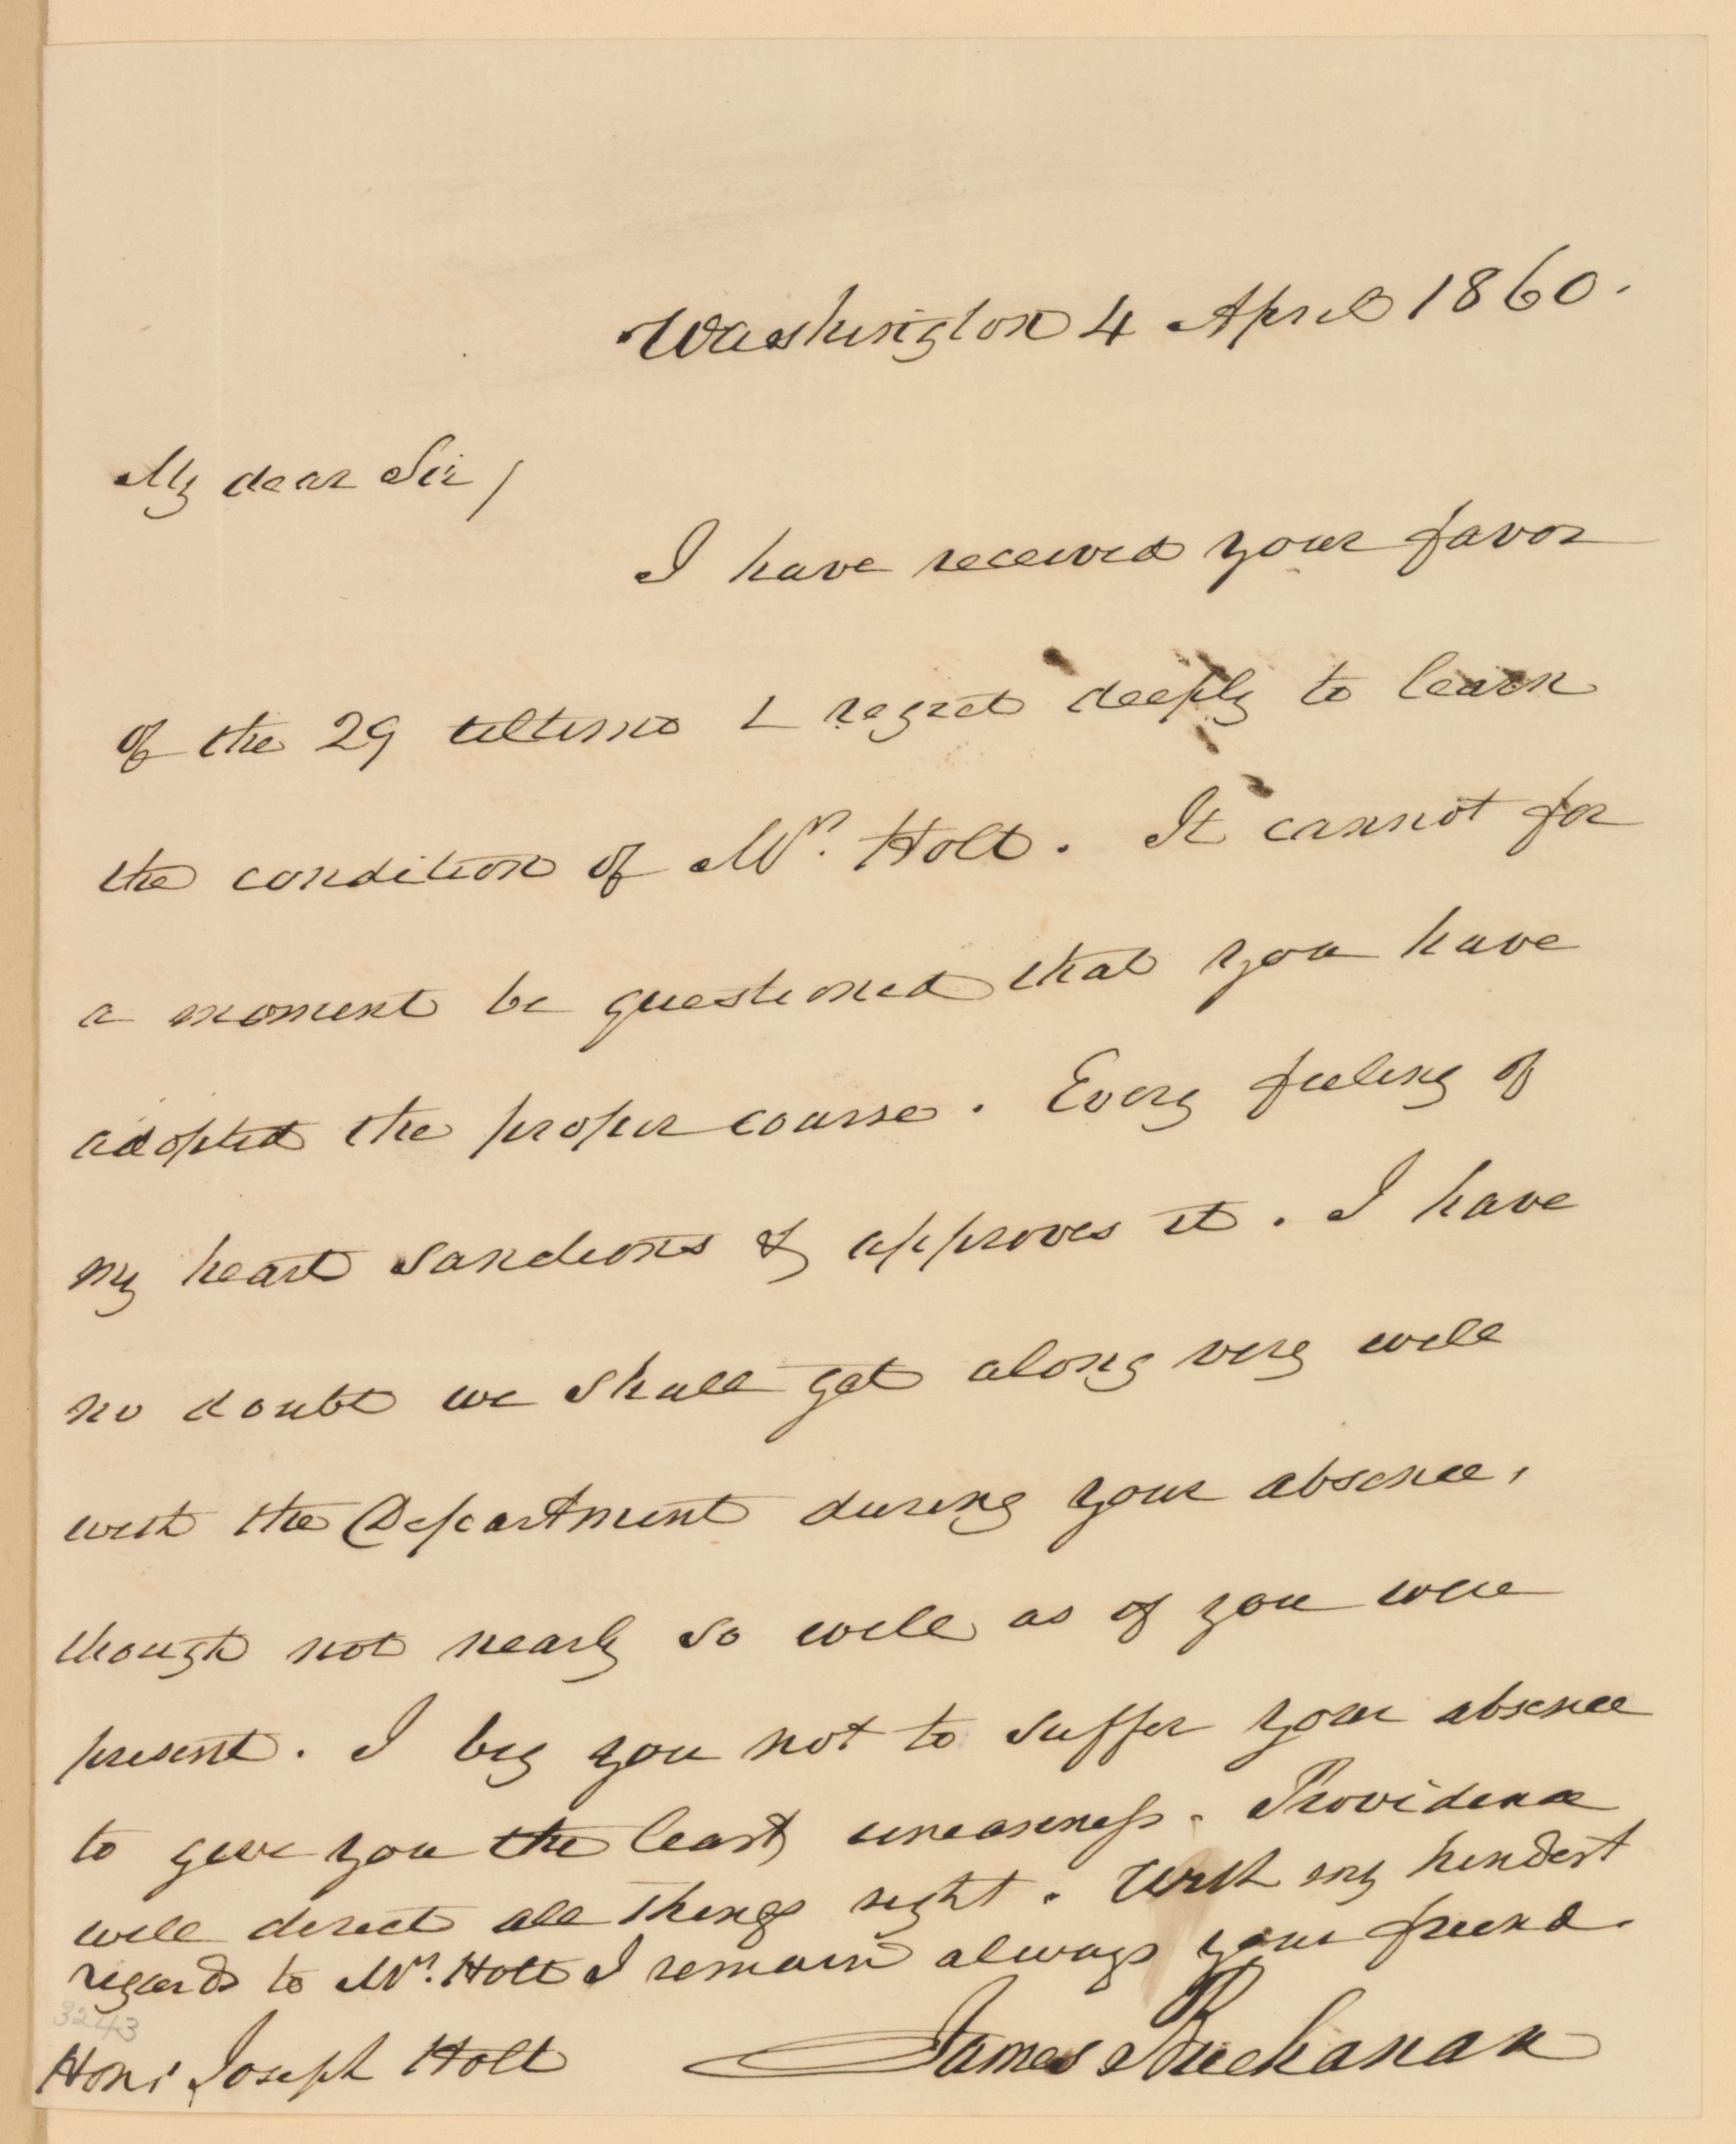 Washington 4 April 1860.
My dear Sir/
I have received your favor
of the 29 ultimo & regret deeply to learn
the condition of Mrs. Holt. It cannot for
a moment be questioned that you have
adopted the proper course. Every feeling of
my heart sanctions & approves it. I have
no doubt we shall get along very well
with the Department during your absence,
though not nearly so well as if you were
present. I beg you not to suffer your absence
to give you the least uneasiness. Providence
will direct all things right. With my kindest
regards to Mrs. Holt I remain always your friend.
James Buchanan
3243
Hon: Joseph Holt